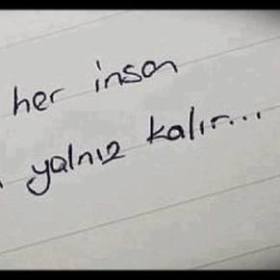 her insan
yalnız kalır...